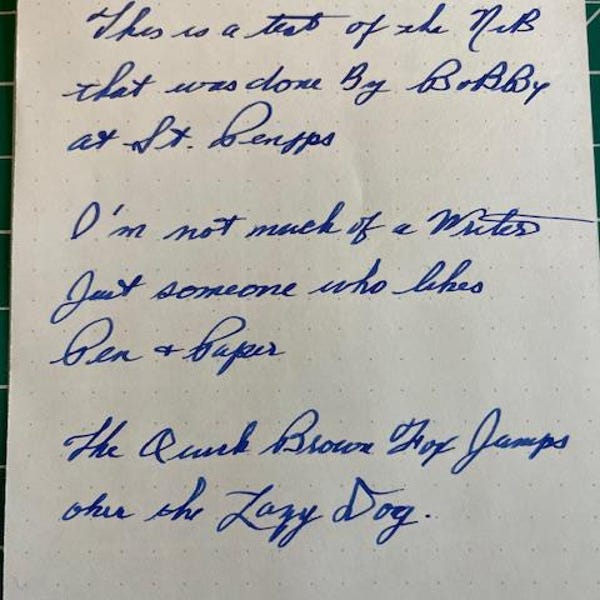 This is a test of the NiB
that was done By BoBBy
at St. Penpps
I'm not much of a Writer
Just someone who likes
Pen + Paper
The Quick Brown Fox Jumps
over the Lazy Dog.